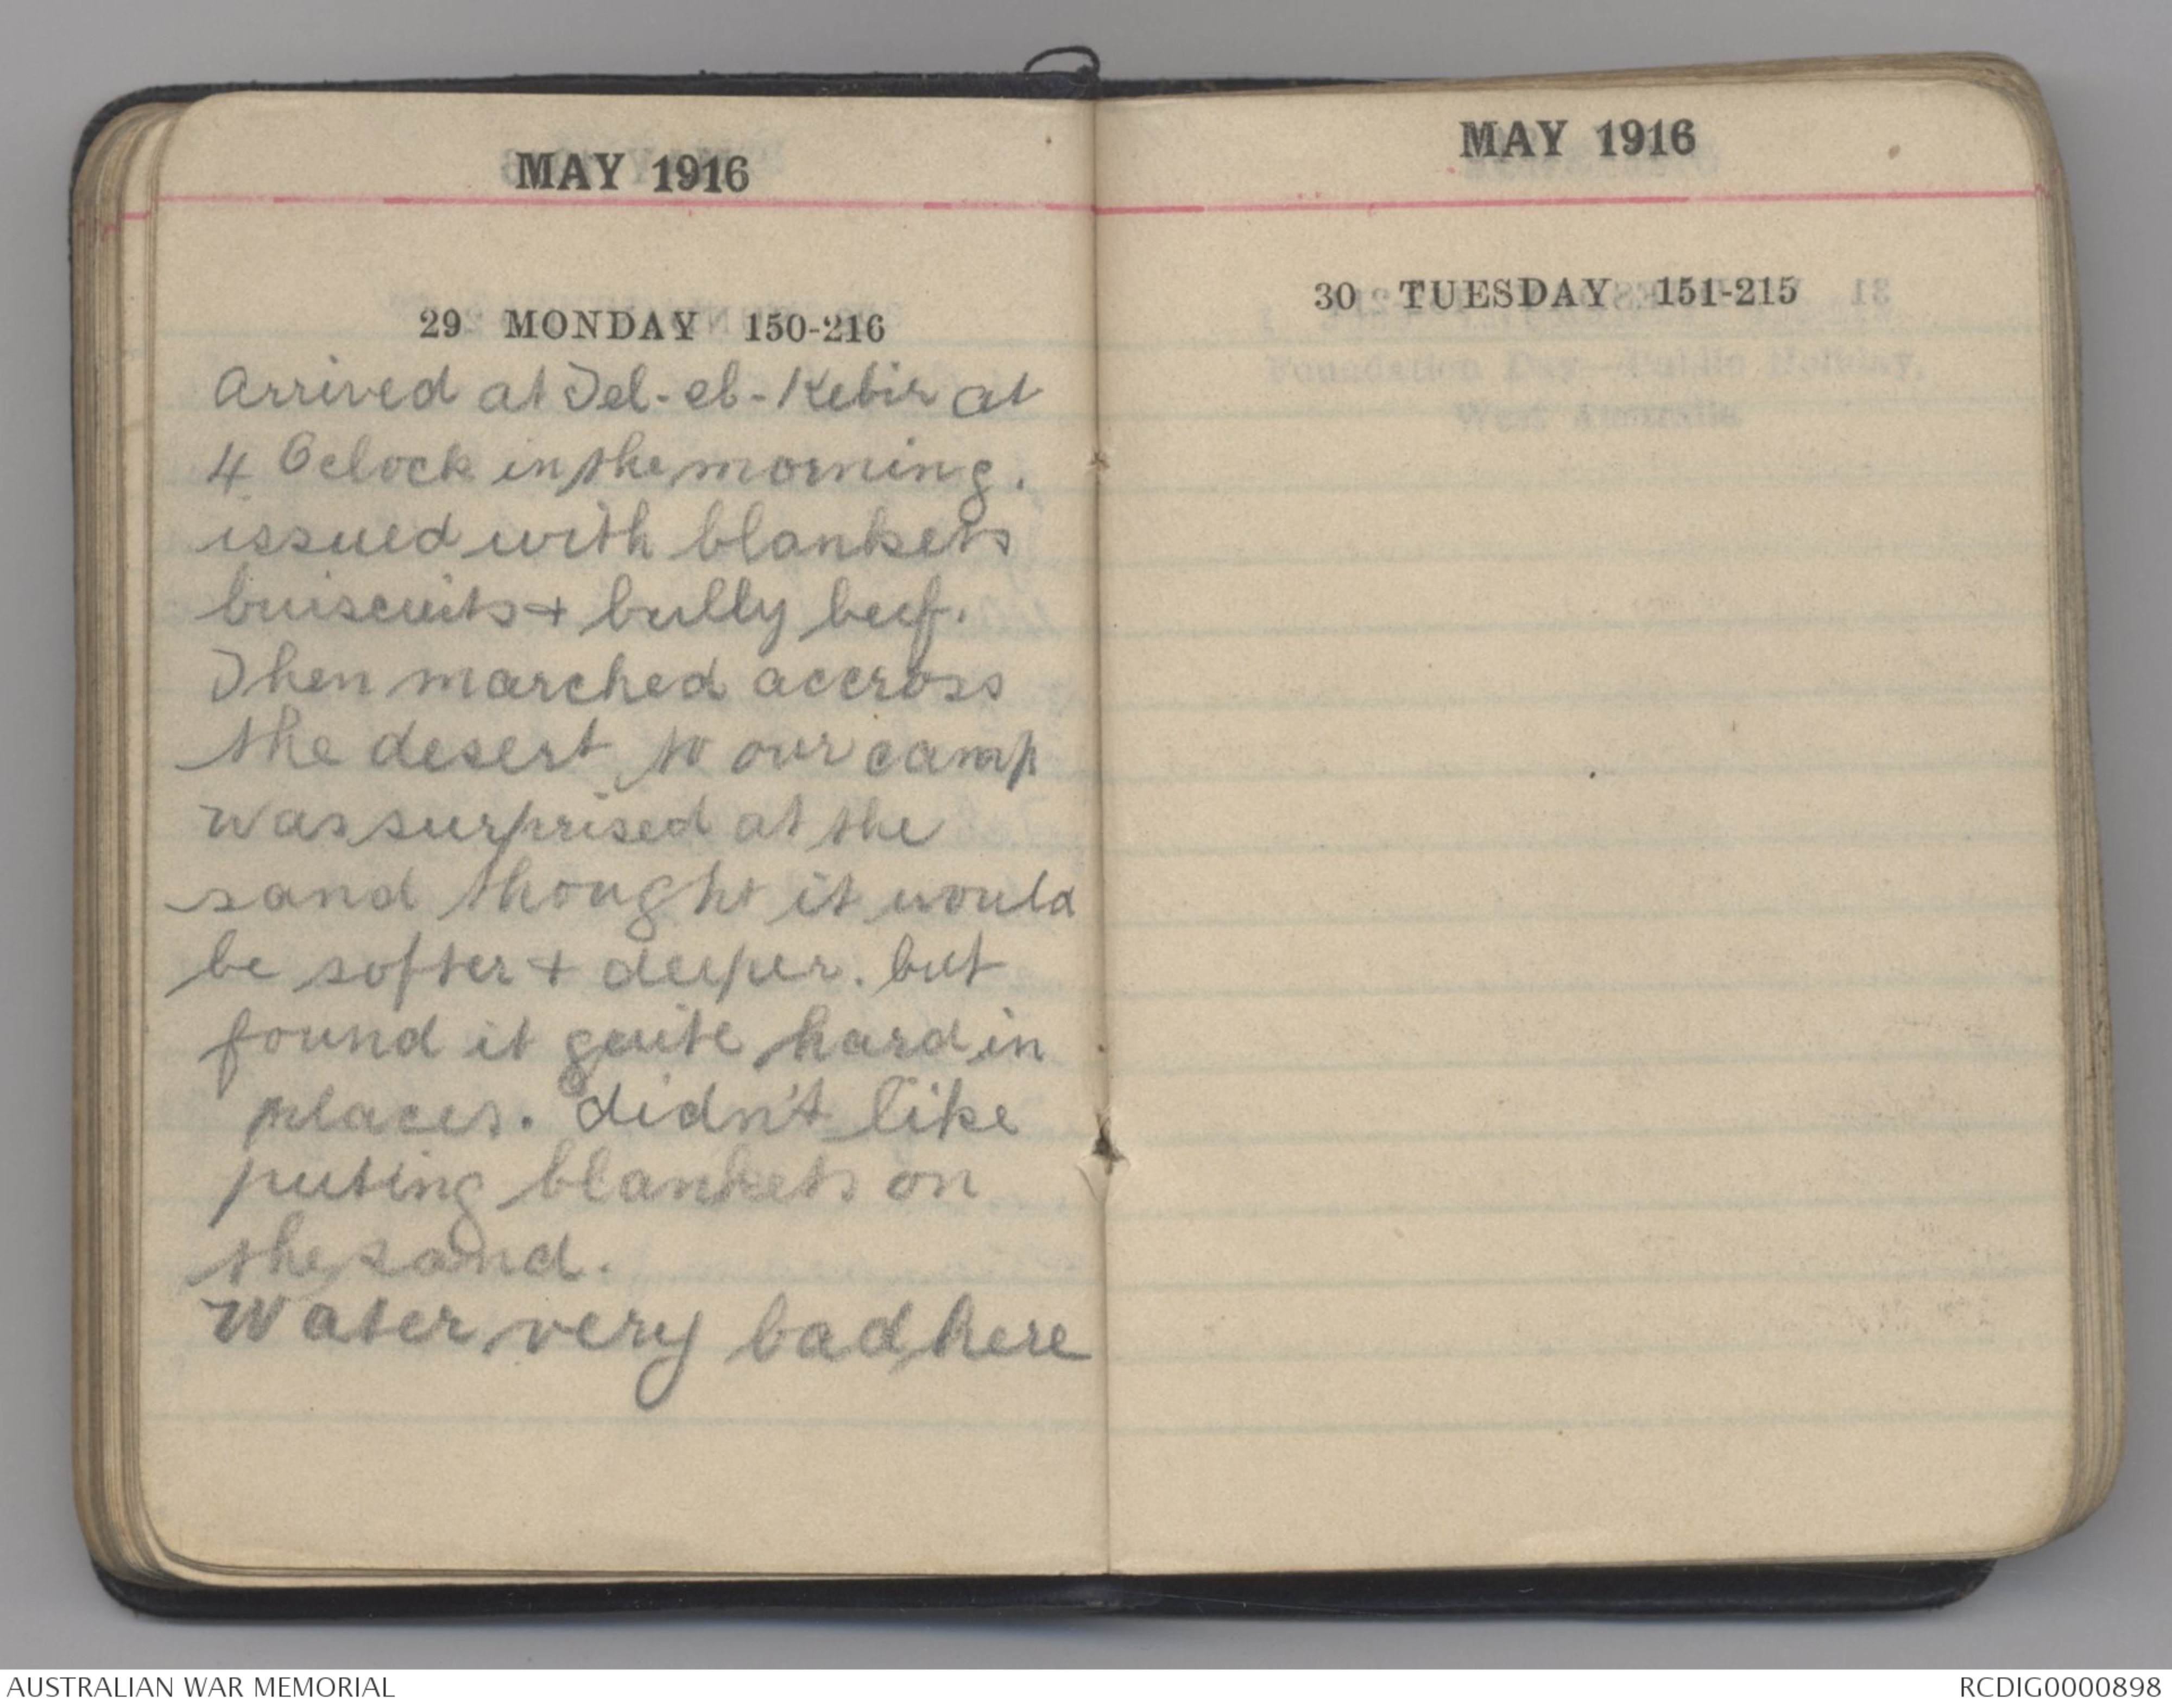 MAY 1916
29 MONDAY 150-216
Arrived at Tel-el-Kebir at
4 Oclock in the morning.
issued with blankets
buiscuits + bully beef.
Then marched accross
the desert to our camp
was surprised at the
sand thought it would
be softer + deeper. but
found it quite hard in
places. didn't like
puting blankets on
the sand.
Water very bad here
MAY 1916
30 TUESDAY 151-215
AUSTRALIAN WAR MEMORIAL
RCDIG0000898